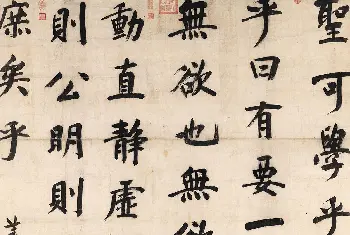 聖可學乎
乎曰有要一
無欲也無欲
動直静虛
則公明則
庶矣乎